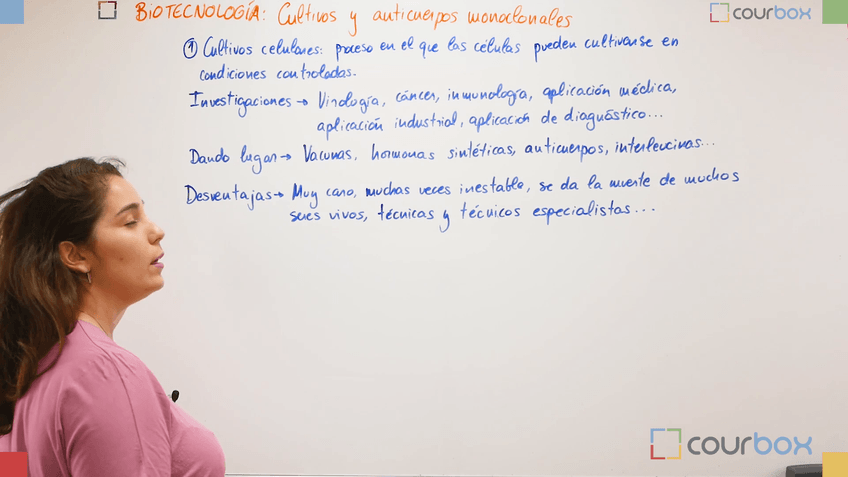 BIOTECNOLOGÍA: Cultivos y anticuerpos monoclonales
courbox
① Cultivos celulares: proceso en el que las células pueden cultivarse en
condiciones controladas.
Investigaciones → Virología, cáncer, inmunología, aplicación médica,
aplicación industrial, aplicación de diagnóstico...
Dando lugar → Vacunas, hormonas sintéticas, anticuerpos, interleucinas...
Desventajas → Muy caro, muchas veces inestable, se da la muerte de muchos
seres vivos, técnicas y técnicos especialistas...
courbox